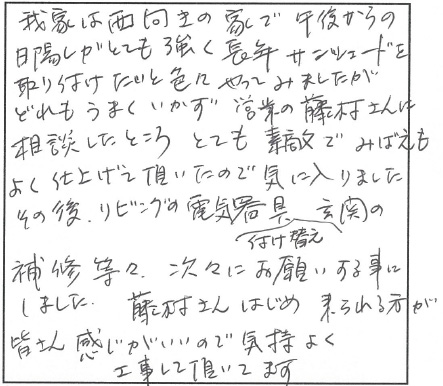 我家は西向きの家で午後からの
日陽しがとても強く長年サンシェードを
取り付けたいと色々やってみましたが
どれもうまくいかず営業の藤村さんに
相談したところとても素敵でみばえも
よく仕上げて頂いたので気に入りました
その後、リビングの電気器具 玄関の
付け替え
補修等々、次々にお願いする事に
しました。藤村さんはじめ来られる方が
皆さん感じがいいので気持よく
工事して頂いてます